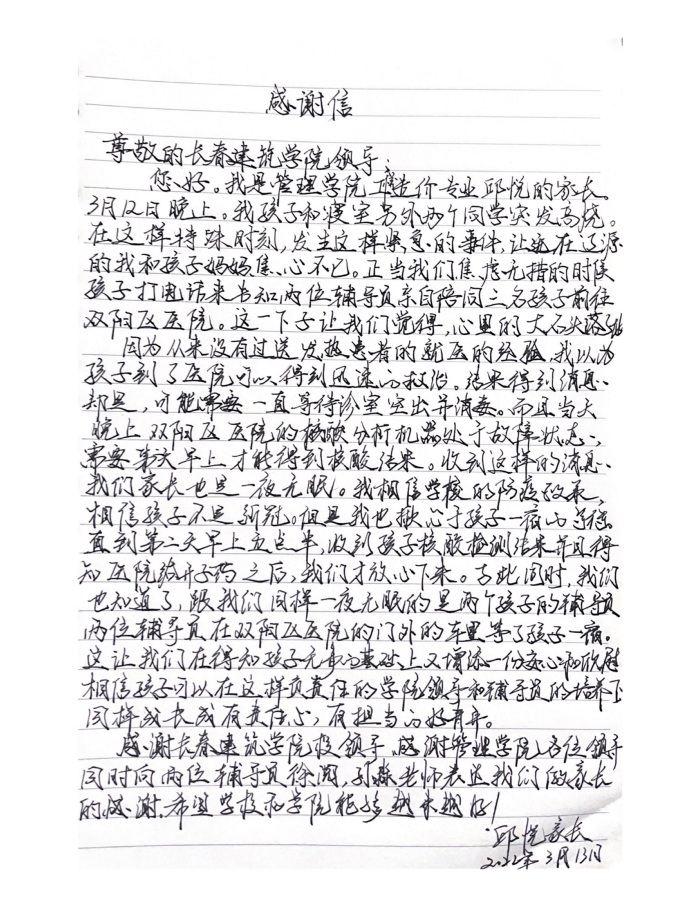 感谢信
尊敬的长春建筑学院领导：
您好。我是管理学院工程造价专业邱悦的家长。
3月12日晚上。我孩子和寝室另外两个同学突发高烧。
在这样特殊时刻,发生这样紧急的事件,让远在辽源
的我和孩子妈妈焦心不已。正当我们焦虑无措的时候
孩子打电话来告知两位辅导员亲自陪同三名孩子前往
双阳区医院。这一下子让我们觉得,心里的大石头落了地
因为从来没有过送发热患者的就医的经验,我以为
孩子到了医院可以得到迅速的救治。结果得到消息
却是,可能需要一直等待诊室空出并消毒。而且当天
晚上双阳区医院的核酸分析机器处于故障状态,
需要第二天早上才能得到核酸结果。收到这样的消息
我们家长也是一夜无眠。我相信学校的防疫效果,
相信孩子不是新冠。但是我也揪心于孩子一宿的等待
直到第二天早上五点半,收到孩子核酸检测结果并且得
知医院给开了药之后,我们才放心下来。与此同时,我们
也知道了,跟我们同样一夜无眠的是两个孩子的辅导员
两位辅导员在双阳区医院的门外的车里等了孩子一宿。
这让我们在得知孩子无事的基础上又增添一份安心和欣慰
相信孩子可以在这样负责任的学院领导和辅导员的培养下
同样成长成有责任心,有担当的好青年。
感谢长春建筑学院校领导,感谢管理学院各位领导
同时向两位辅导员徐阔,孙淼老师表达我们做家长
的感谢,希望学校和学院能够越来越好!
邱悦家长
2022年3月13日